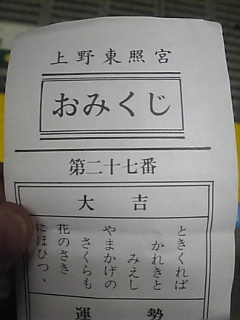 上野東照宮
おみくじ
第二十七番
大吉
ときくれば
かれきと
みえし
やまかげの
さくらも
花のさき
にほひつゝ
運勢